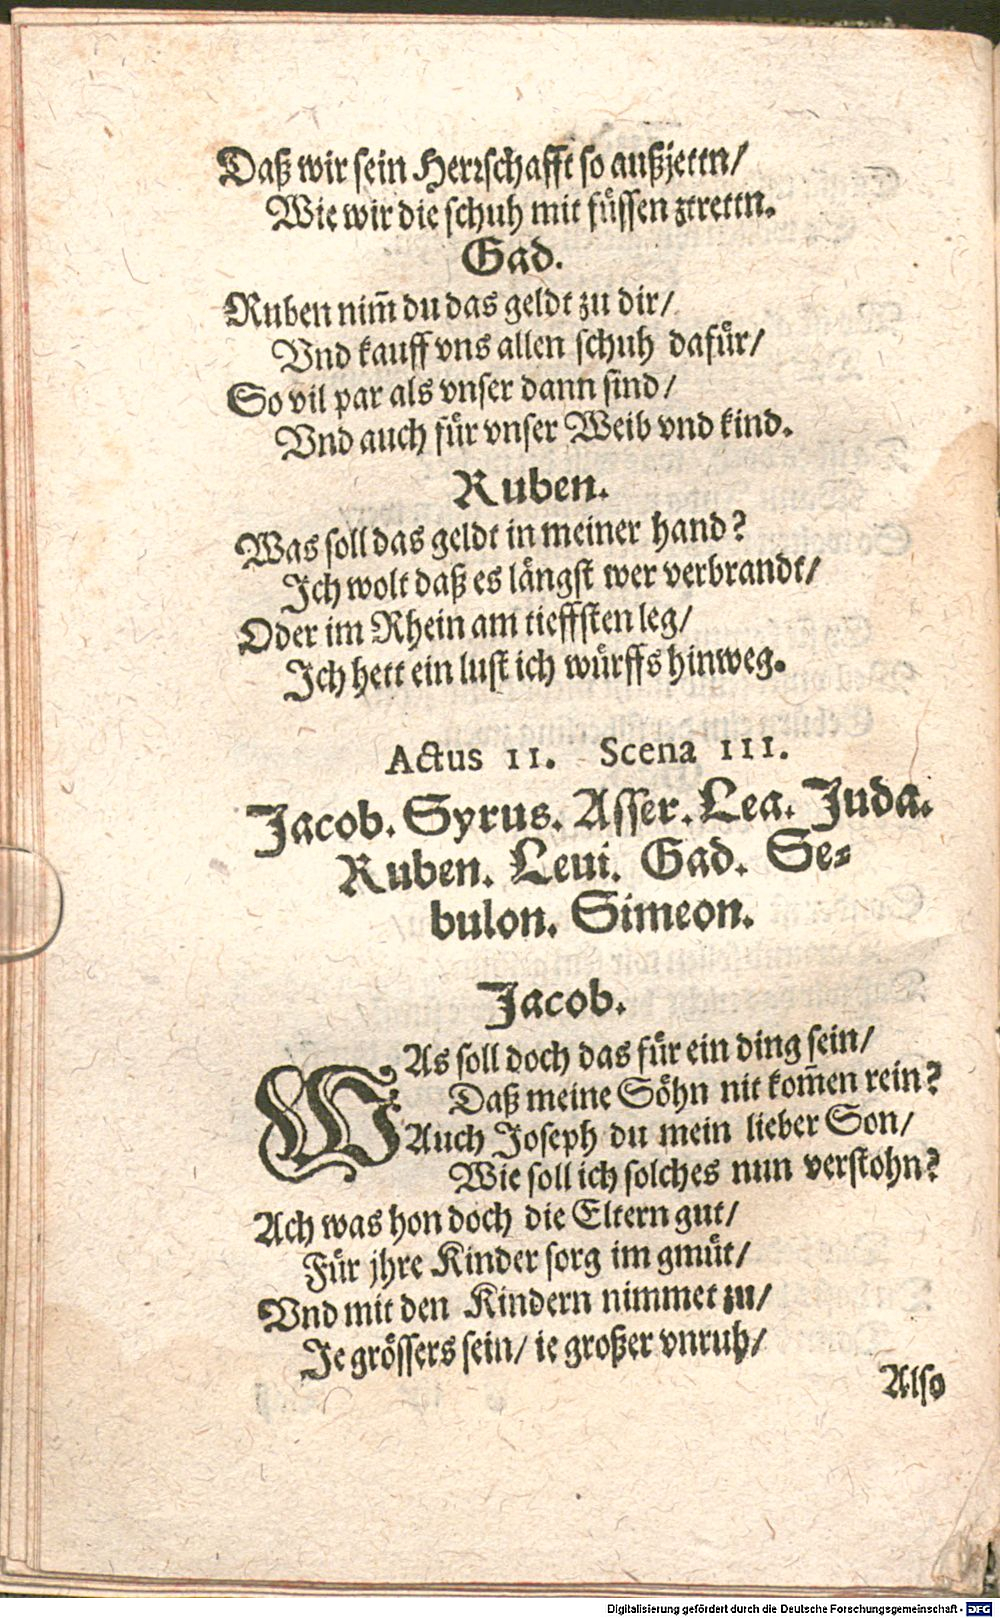 Daß wir sein Herrschafft so außjettn/
Wie wir die schuh mit füssen ztrettn.
Gad.
Ruben nim̃ du das geldt zu dir/
Vnd kauff vns allen schuh dafür/
So vil par als vnser dann sind/
Vnd auch für vnser Weib vnd kind.
Ruben.
Was soll das geldt in meiner hand?
Ich wolt daß es längst wer verbrandt/
Oder im Rhein am tieffsten leg/
Ich hett ein lust ich würffs hinweg.
Actus II. Scena III.
Jacob. Syrus. Asser. Lea. Juda.
Ruben. Leui. Gad. Se-
bulon. Simeon.
Jacob.
WAs soll doch das für ein ding sein/
Daß meine Söhn nit kom̃en rein?
Auch Joseph du mein lieber Son/
Wie soll ich solches nun verstohn?
Ach was hon doch die Eltern gut/
Für jhre Kinder sorg im gmüt/
Vnd mit den Kindern nimmet zu/
Je grössers sein/ ie großer vnruh/
Also
Digitalisierung gefördert durch die Deutsche Forschungsgemeinschaft - DFG